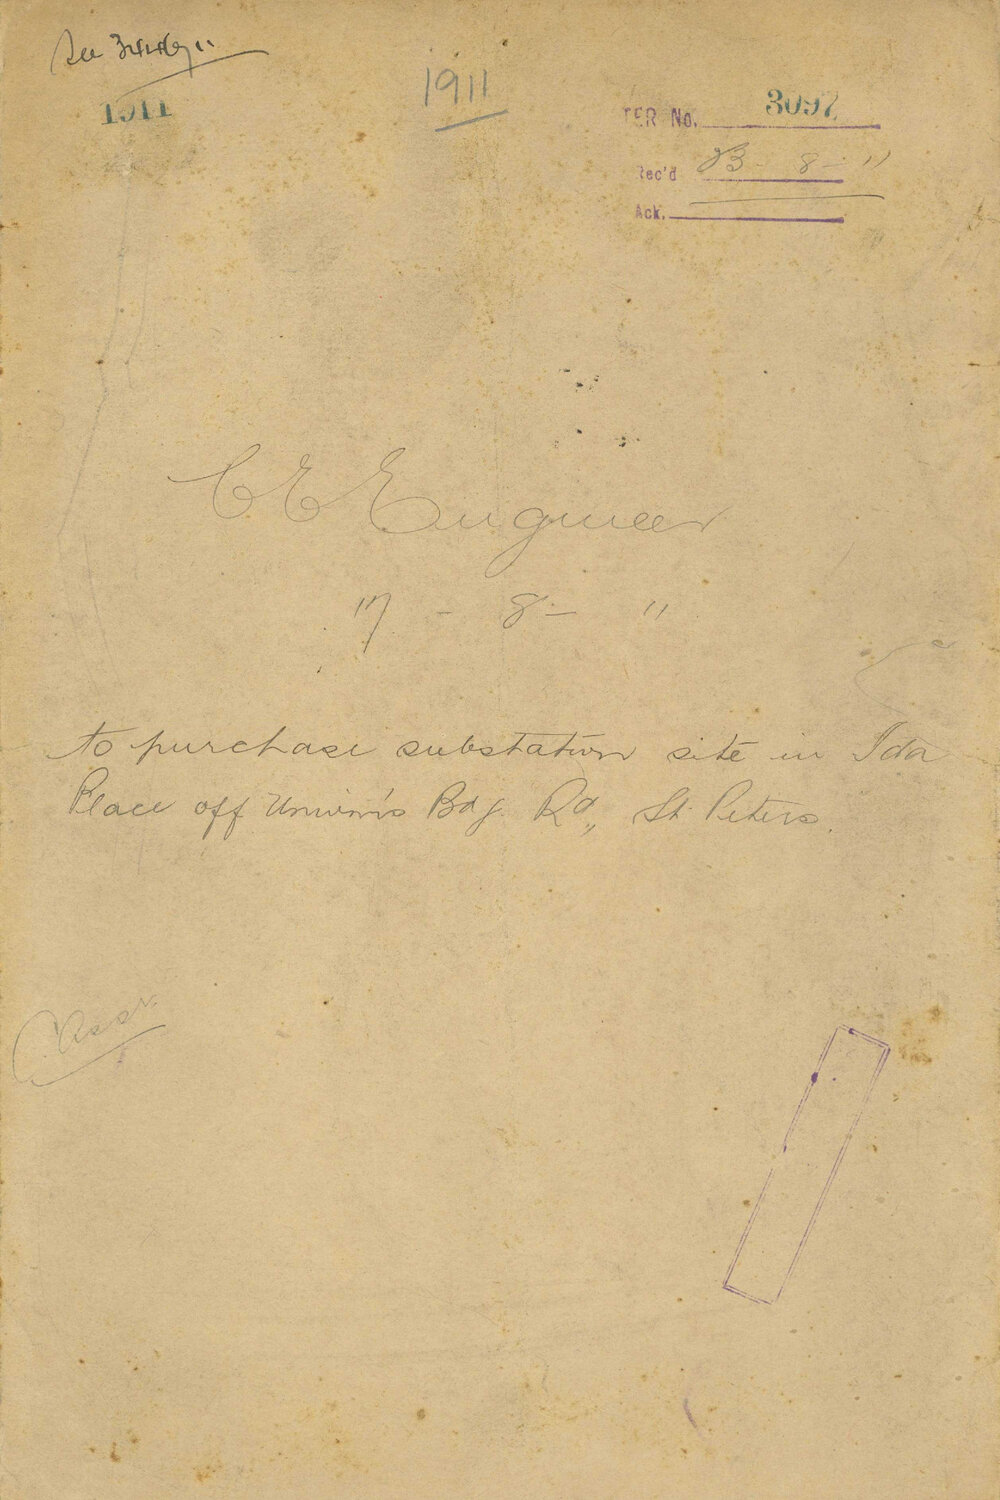 See
1911
1911
TER No. 3097
Rec'd 23-8-11
Ack.
C E Engineer
17-8-11
to purchase substation site in Ida
Place off Unwin's Bdg. Rd, St Peters.